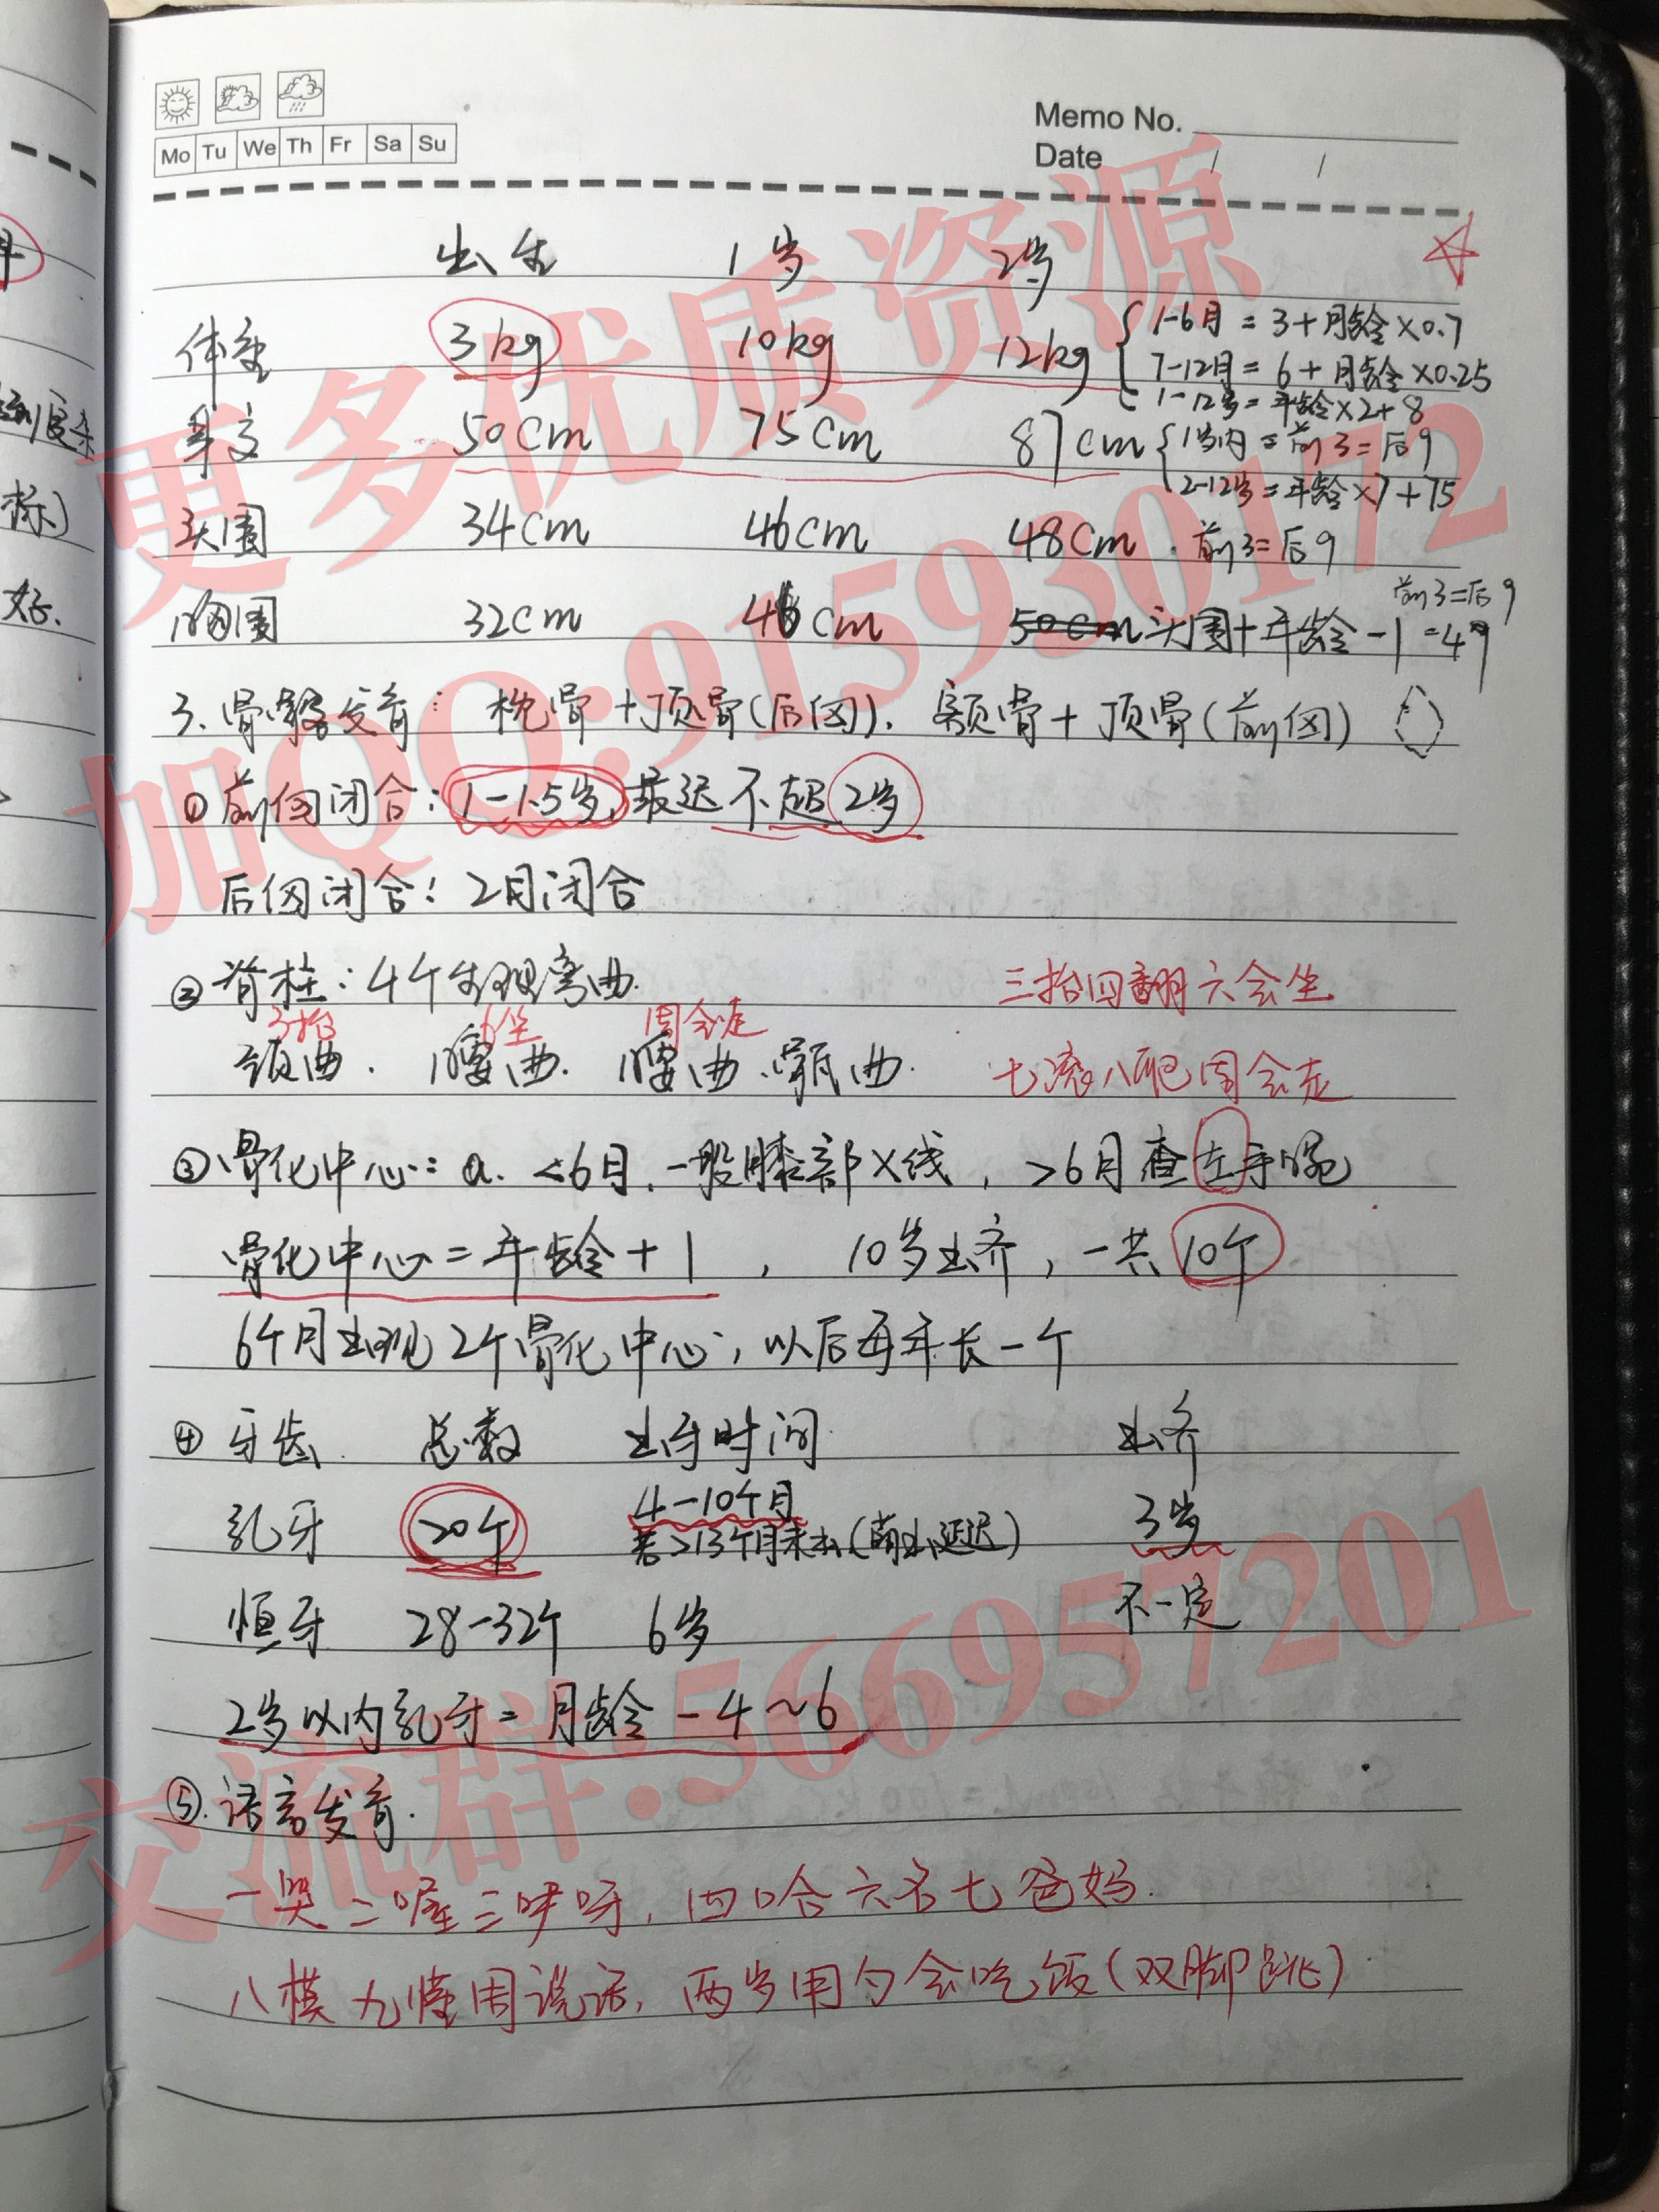 Mo Tu We Th Fr Sa Su
Memo No.
Date / /
出生 1岁 2岁
体重 3kg 10kg 12kg
1-6月 = 3+月龄×0.7
7-12月 = 6+月龄×0.25
1-12岁=年龄×2+8
身高 50cm 75cm 87cm
1岁内=前3=后9
2-12岁=年龄×7+75
头围 34cm 46cm 48cm 前3=后9
胸围 32cm 46cm 50cm 头围+年龄-1=49
前3=后9
3.骨骼发育: 枕骨+顶骨(后囟). 额骨+顶骨(前囟)
①前囟闭合:1-1.5岁,最迟不超2岁
后囟闭合:2月闭合
②脊柱:4个生理弯曲.
三抬四翻六会坐
3抬 6坐 周会走
颈曲. 胸曲. 腰曲、骶曲.
七滚八爬周会走
③骨化中心:a.<6月,一般膝部X线,>6月查左手腕
骨化中心=年龄+1, 10岁出齐,一共10个
6个月出现2个骨化中心,以后每年长一个
④牙齿 总数 出牙时间 出齐
乳牙 20个 4-10个月 3岁
若>13个月未出(萌出延迟)
恒牙 28-32个 6岁 不一定
2岁以内乳牙=月龄-4~6
⑤.语言发育.
一哭二喔三咿呀,四哈六名七爸妈.
八模九懂周说话,两岁用勺会吃饭(双脚跳)
更多优质资源
加QQ:915930172
交流群:566957201